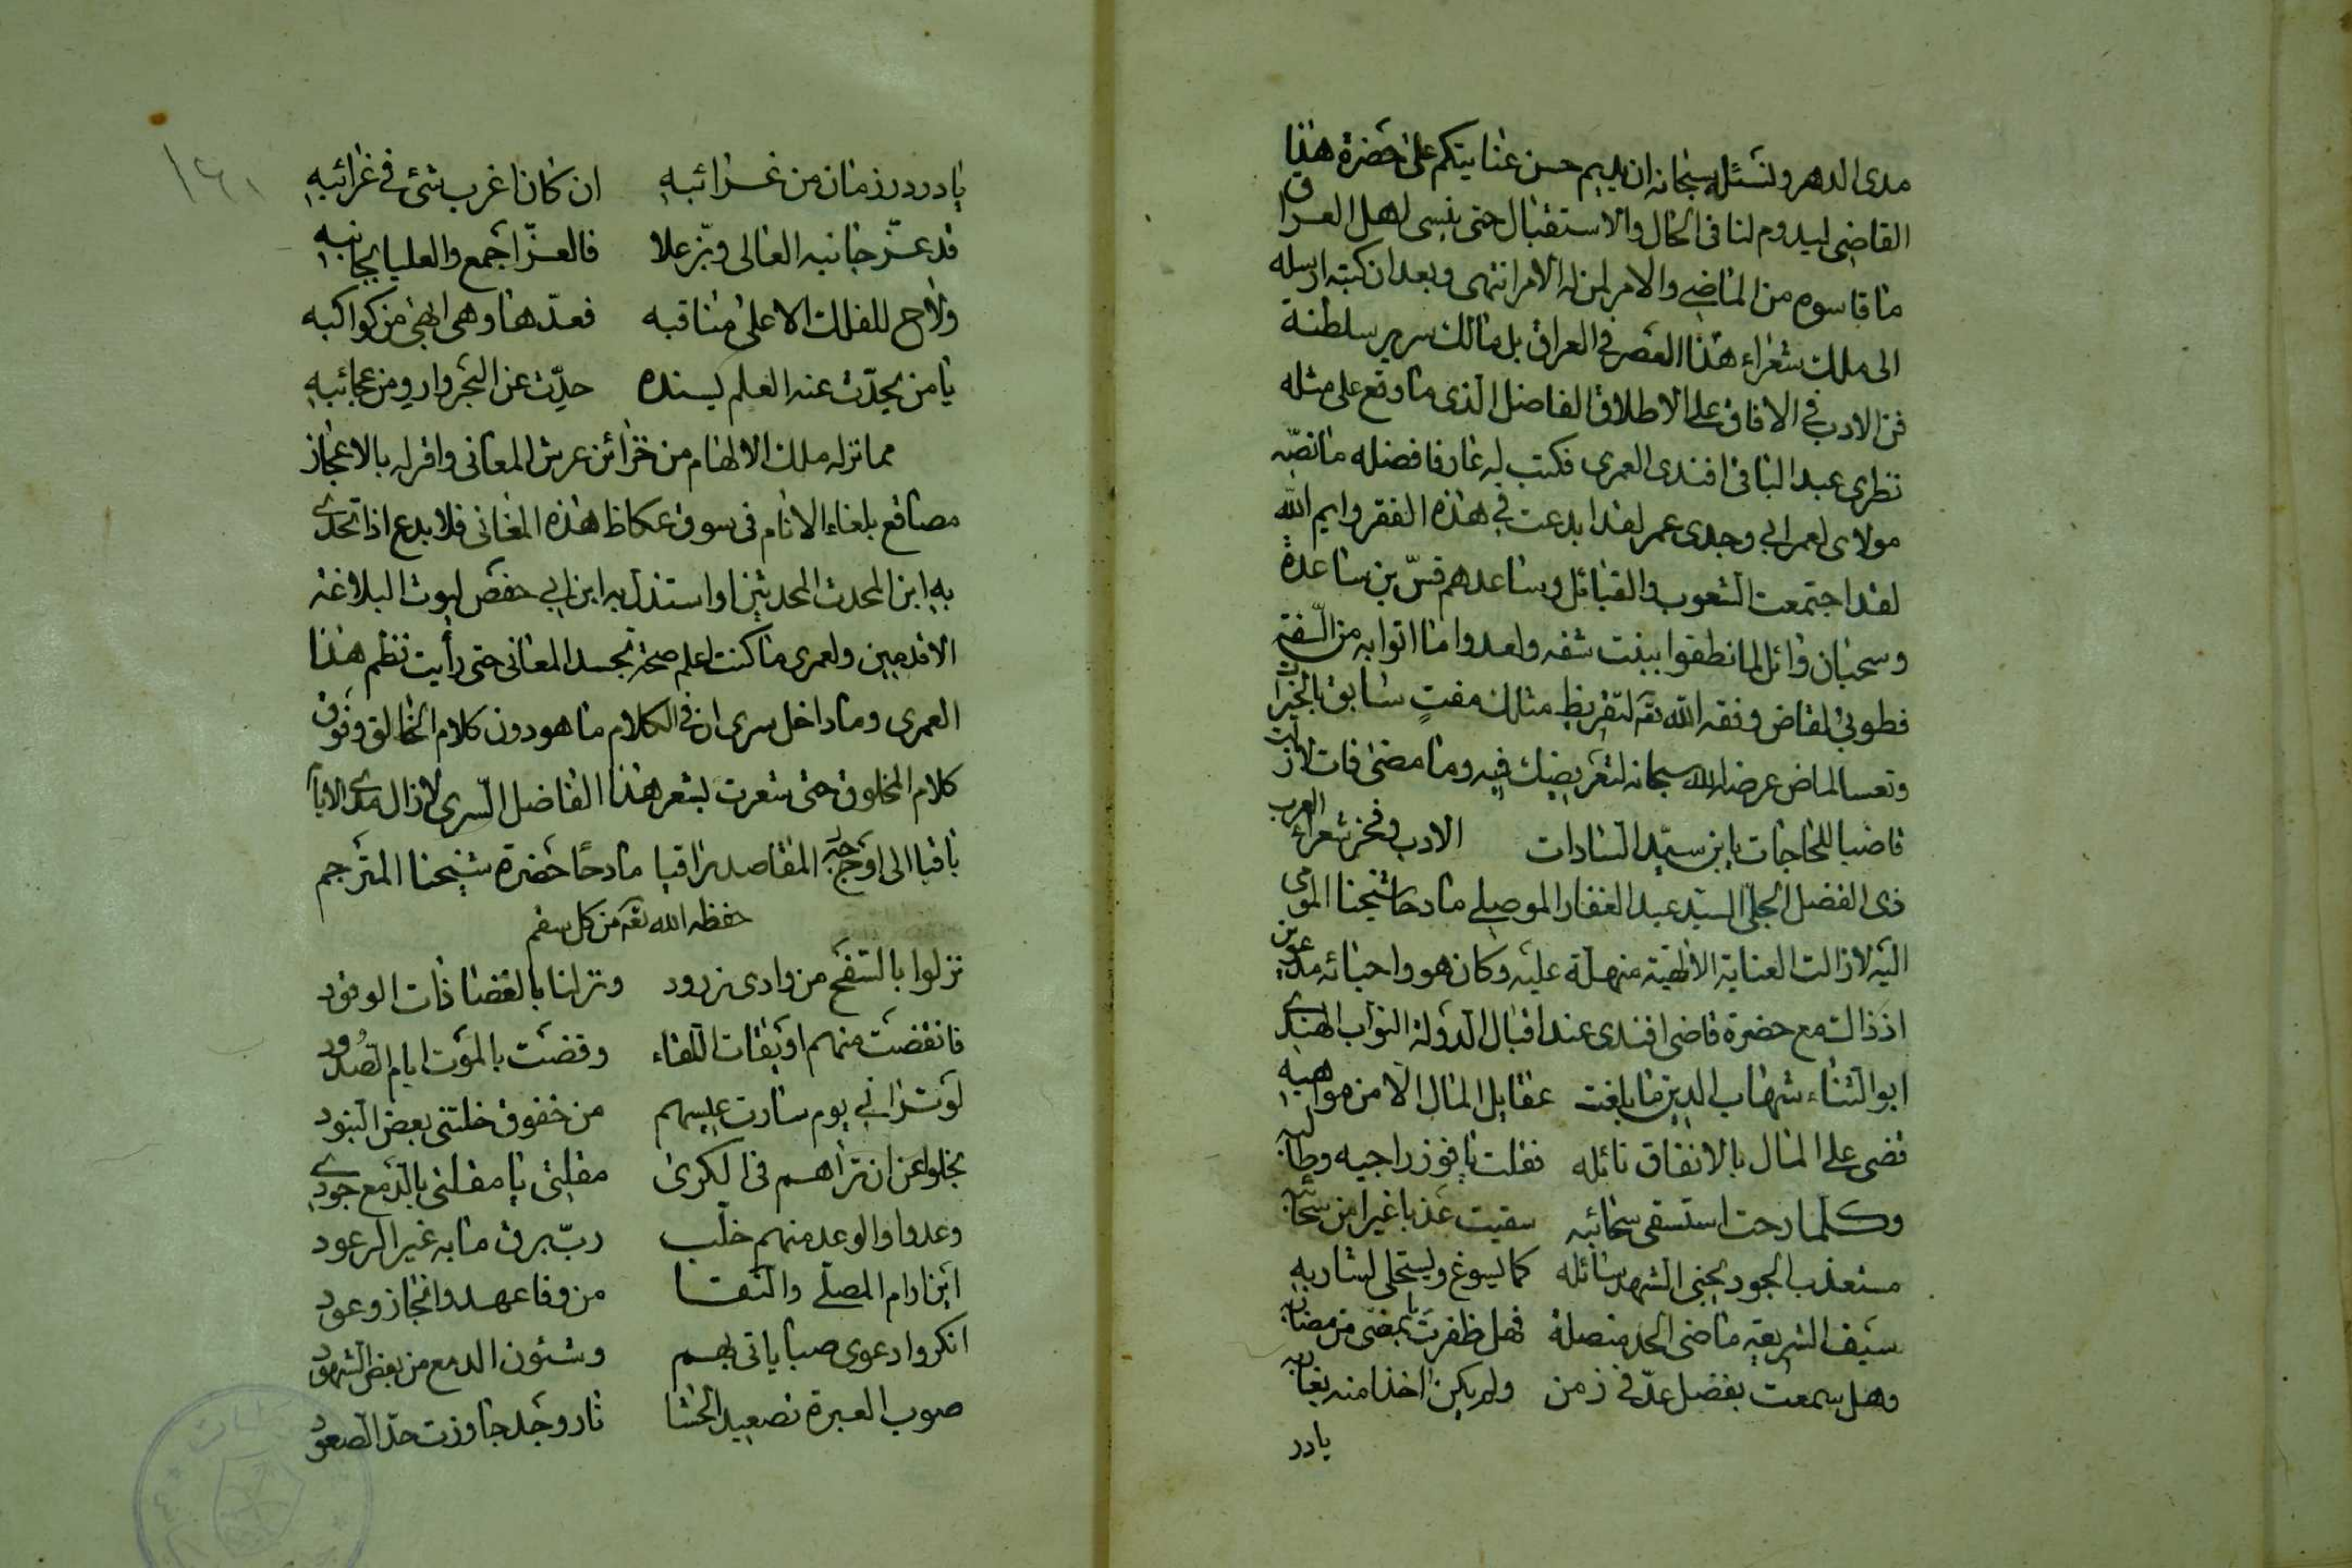 مدى الدهر ونسئله سبحانه ان يديم حسن عنايتكم على حضرة هذا
القاضي ليدوم لنا في الحال والاستقبال حتى ينسى اهل العراق
ما قاسوه من الماضي والامر لمن له الامر انتهى وبعد ان كتبه ارسله
الى ملك شعراء هذا العصر في العراق بل مالك سرير سلطنة
فن الادب في الافاق على الاطلاق الفاضل الذى ما وقع على مثله
نظرى عبد الباقى افندى العمرى فكتب له عارفا فضله ما نصّه
مولاى لعمر ابي وجدى عمر لقد ابدعت في هذه الفقر وايم الله
لقد اجتمعت الشعوب والقبائل وساعدهم قسّ بن ساعدة
وسحبان وائل لما نطقوا ببنت شفه ولعدوا ما اتوا به من السّفه
فطوبى لقاض وفقه الله تعه لتقريظ مثلك مفتٍ سابق بالخيرات
وتعسا لماض عرضه الله سبحانه لتعريضك فيه وما مضى فات لازلت
قاضيا للحاجات يا ابن سيّد السادات الادب وفخر شعراء العرب
ذى الفضل الجلىّ السيّد عبد الغفار الموصلي مادحا شيخنا المومى
اليه لازالت العناية الالهية منهلة عليه وكان هو واحبائه مدعوين
اذ ذاك مع حضرة قاضى افندى عند اقبال الدولة النواب الهندى
ابو الثناء شهاب الدين ما بلغت عقايل المال الا من مواهبه
قضى على المال بالانفاق نائله فقلت يا فوز راجيه وطالبه
وكلما رحت استسقى سحائبه سقيت عذبا غيرا من سحائبه
مستعذب الجود يجنى الشهد سائله كما يسوغ ويستحلى لشاربه
سيف الشريعة ماضى الحد منصلة فهل ظفرت بامضى من مضاربه
وهل سمعت بفضل عدّ في زمن ولم يكن اخذا منه بغاربه
يا در
١٦١
يا در درّ زمان من غرائبه ان كان اغرب شئ في غرائبه
قد عزّ جانبه العالى وبزّ علا فالعزّ اجمع والعليا بجانبه
ولاح للفلك الاعلى مناقبه فعدّها وهى ابهى من كواكبه
يا من يحدّث عنه العلم يسنده حدّث عن البحر واروِ من عجائبه
مما نزله ملك الالهام من خزائن عرش المعانى واقر له بالاعجاز
مصاقع بلغاء الانام فى سوق عكاظ هذه المغانى فلا بدع اذا تحدى
به ابن المحدث المحدثين او استذل به ابن ابي حفص ليوث البلاغه
الاقدمين ولعمرى ما كنت اعلم صحة تجسد المعانى حتى رأيت نظم هذا
العمرى وما داخل سرى ان في الكلام ما هو دون كلام الخالق وفوق
كلام المخلوق حتى شعرت بشعر هذا الفاضل السّرى لازال مدى الايام
باقيا الى اوج المقاصد راقيا مادحًا حضرة شيخنا المترجم
حفظه الله تعه من كل سقم
نزلوا بالسّفح من وادى زرود ونزلنا بالغضا ذات الوقود
فانقضت منهم اويقات اللقاء وقضت بالموت ايام الصُدود
لو تراني يوم سارت عيسهم من خفوق خلتنى بعض البنود
بخلوا عن ان تراهم فى الكرى مقلتى يا مقلتى بالدّمع جودى
وعدوا والوعد منهم خلّب ربّ برق ما به غير الرعود
اين ارام المصلّى والنقا من وفا عهد وانجاز وعود
انكروا دعوى صباباتى بهم وشئون الدمع من بعض الشهود
صوب العبرة تصعيد الحشا نار وجد جاوزت حدّ الصعود